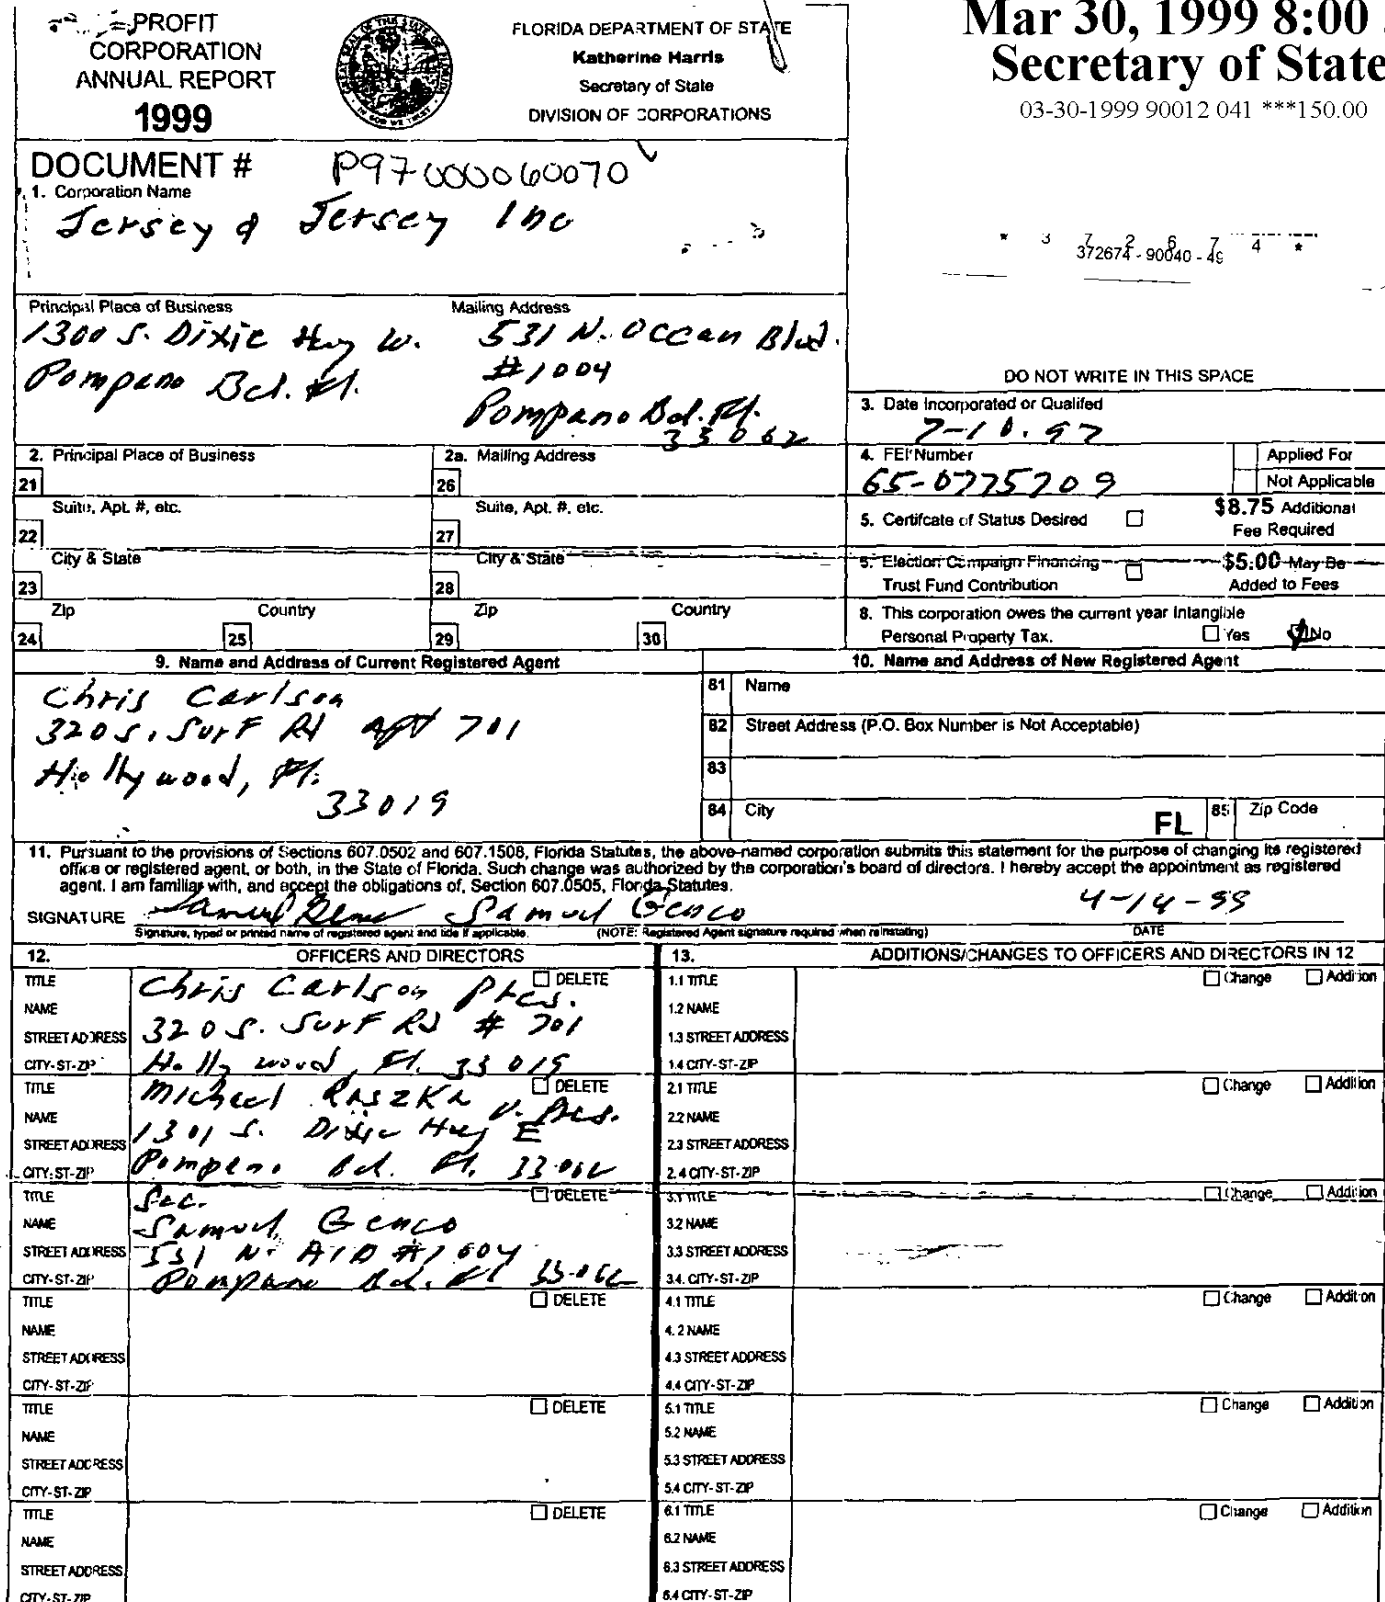 PROFIT
CORPORATION
ANNUAL REPORT
1999
FLORIDA DEPARTMENT OF STATE
Katherine Harris
Secretary of State
DIVISION OF CORPORATIONS
Mar 30, 1999 8:00
Secretary of State
03-30-1999 90012 041 ***150.00
DOCUMENT # P97000060070
1. Corporation Name
Jersey & Jersey Inc
* 3 7 2 6 7 4 *
372674 - 90040 - 49
Principal Place of Business
1300 S. Dixie Hwy W.
Pompano Bch. Fl.
Mailing Address
531 N. Ocean Blvd.
#1004
Pompano Bch. Fl.
33062
DO NOT WRITE IN THIS SPACE
3. Date Incorporated or Qualifed
7-10.97
2. Principal Place of Business
21
2a. Mailing Address
26
4. FEI Number
65-0775709
Applied For
Not Applicable
Suite, Apt. #, etc.
22
Suite, Apt. #, etc.
27
5. Certifcate of Status Desired
$8.75 Additional
Fee Required
City & State
23
City & State
28
6. Election Campaign Financing
Trust Fund Contribution
$5.00 May Be
Added to Fees
Zip Country
24 25
Zip Country
29 30
8. This corporation owes the current year Intangible
Personal Property Tax. Yes No
9. Name and Address of Current Registered Agent
Chris Carlson
320 S. Surf Rd apt 701
Hollywood, Fl.
33019
10. Name and Address of New Registered Agent
81 Name
82 Street Address (P.O. Box Number is Not Acceptable)
83
84 City FL 85 Zip Code
11. Pursuant to the provisions of Sections 607.0502 and 607.1508, Florida Statutes, the above-named corporation submits this statement for the purpose of changing its registered
office or registered agent, or both, in the State of Florida. Such change was authorized by the corporation's board of directors. I hereby accept the appointment as registered
agent. I am familiar with, and accept the obligations of, Section 607.0505, Florida Statutes.
SIGNATURE Samuel Genco Samuel Genco 4-14-99
Signature, typed or printed name of registered agent and title if applicable. (NOTE: Registered Agent signature required when reinstating) DATE
12. OFFICERS AND DIRECTORS
TITLE DELETE
NAME Chris Carlson Pres.
STREET ADDRESS 320 S. Surf Rd # 701
CITY-ST-ZIP Hollywood, Fl. 33019
TITLE Michael Raszka V. Pres. DELETE
NAME
STREET ADDRESS 1301 S. Dixie Hwy E
CITY-ST-ZIP Pompano Bch. Fl. 33062
TITLE Sec. DELETE
NAME Samuel Genco
STREET ADDRESS 531 N. A1A #1004
CITY-ST-ZIP Pompano Bch. Fl 33062
TITLE DELETE
NAME
STREET ADDRESS
CITY-ST-ZIP
TITLE DELETE
NAME
STREET ADDRESS
CITY-ST-ZIP
TITLE DELETE
NAME
STREET ADDRESS
CITY-ST-ZIP
13. ADDITIONS/CHANGES TO OFFICERS AND DIRECTORS IN 12
1.1 TITLE Change Addition
1.2 NAME
1.3 STREET ADDRESS
1.4 CITY-ST-ZIP
2.1 TITLE Change Addition
2.2 NAME
2.3 STREET ADDRESS
2.4 CITY-ST-ZIP
3.1 TITLE Change Addition
3.2 NAME
3.3 STREET ADDRESS
3.4. CITY-ST-ZIP
4.1 TITLE Change Addition
4.2 NAME
4.3 STREET ADDRESS
4.4 CITY-ST-ZIP
5.1 TITLE Change Addition
5.2 NAME
5.3 STREET ADDRESS
5.4 CITY-ST-ZIP
6.1 TITLE Change Addition
6.2 NAME
6.3 STREET ADDRESS
6.4 CITY-ST-ZIP